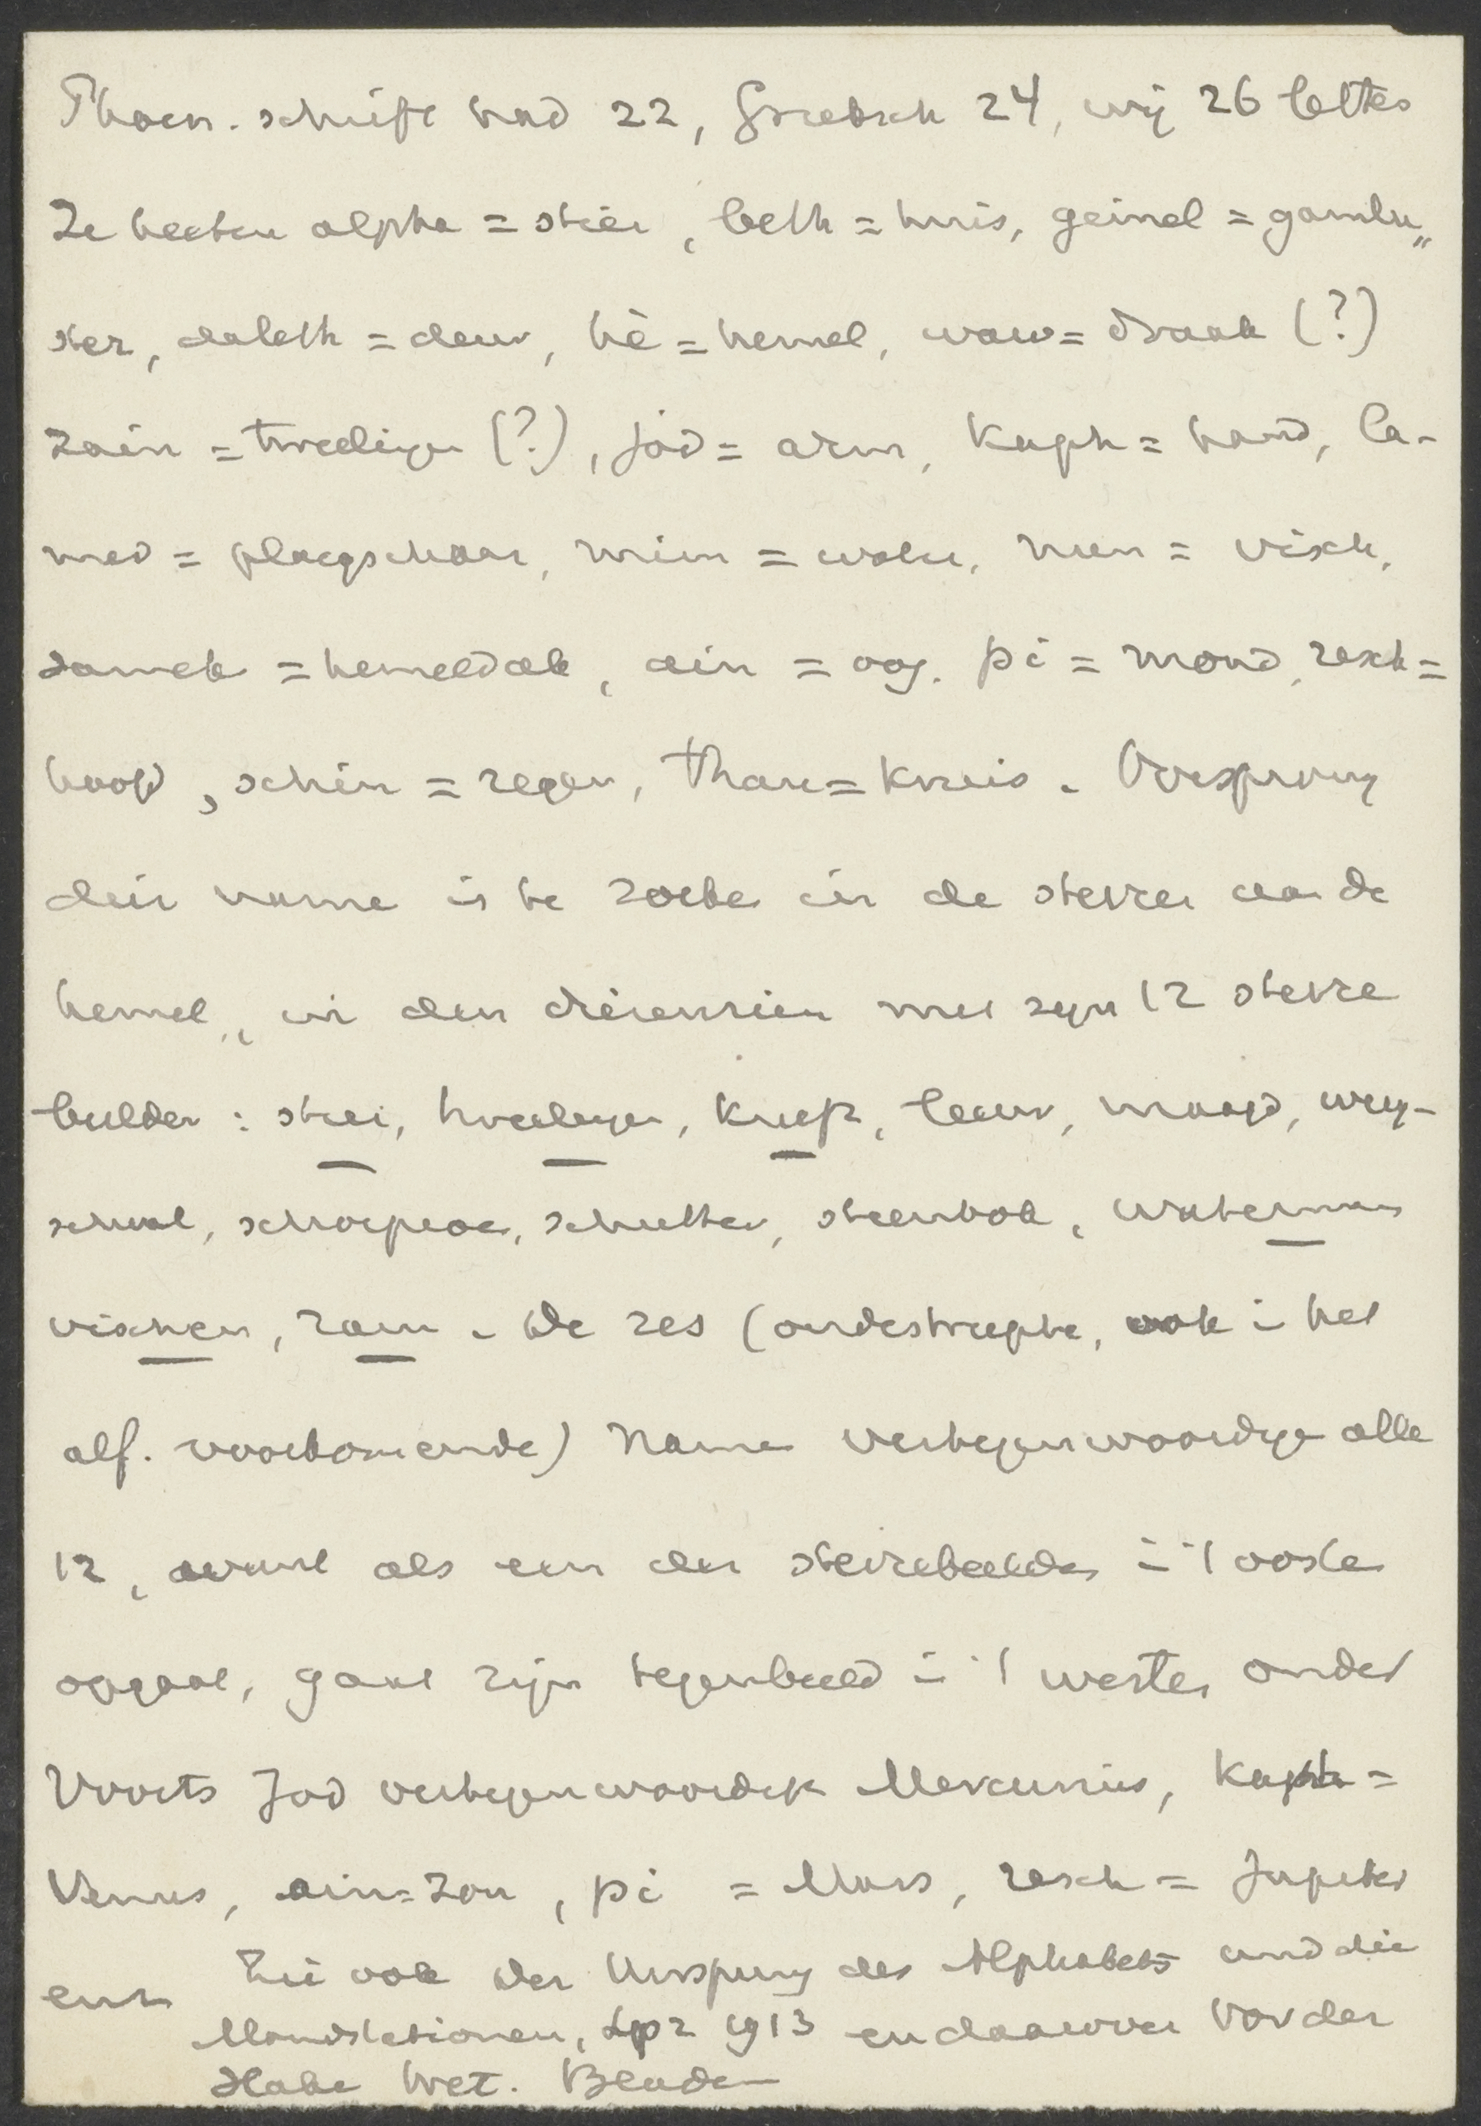 Phoen. schrift had 22, Grieksch 24, wij 26 letters
Ze heeten alpha = stier, beth = huis, gimel = gamlu„
ster, daleth = deur, hè = hemel, waw = draak (?)
zain = tweelingen (?), jod = arm, kaph = hand, la-
med = ploegschaar, mim = water, nun = visch,
samek = hemeldak, ain = oog, pi = mond, resch =
hoofd, schin = regen, thau = kruis. Oorsprong
dier namen is te zoeken in de sterren aan de
hemel, in den dierenriem met zijn 12 sterre
beelden: stier, tweelingen, kreeft, leeuw, maagd, weeg-
schaal, schorpioen, schutter, steenbok, waterman
visschen, ram. De zes (onderstreepte, ook in het
alf. voorkomende) namen vertegenwoordigen alle
12, want als een der sterrebeelden in 't oosten
opgaat, gaat zijn tegenbeeld in 't westen onder
Voorts Jod vertegenwoordigt Mercurius, kaph =
Venus, ain = zon, pi = Mars, resch = Jupiter
enz Zie ook Der Ursprung des Alphabets und die
Mondstationen, Lpz 1913 en daarover Van der
Hake Wet. Bladen